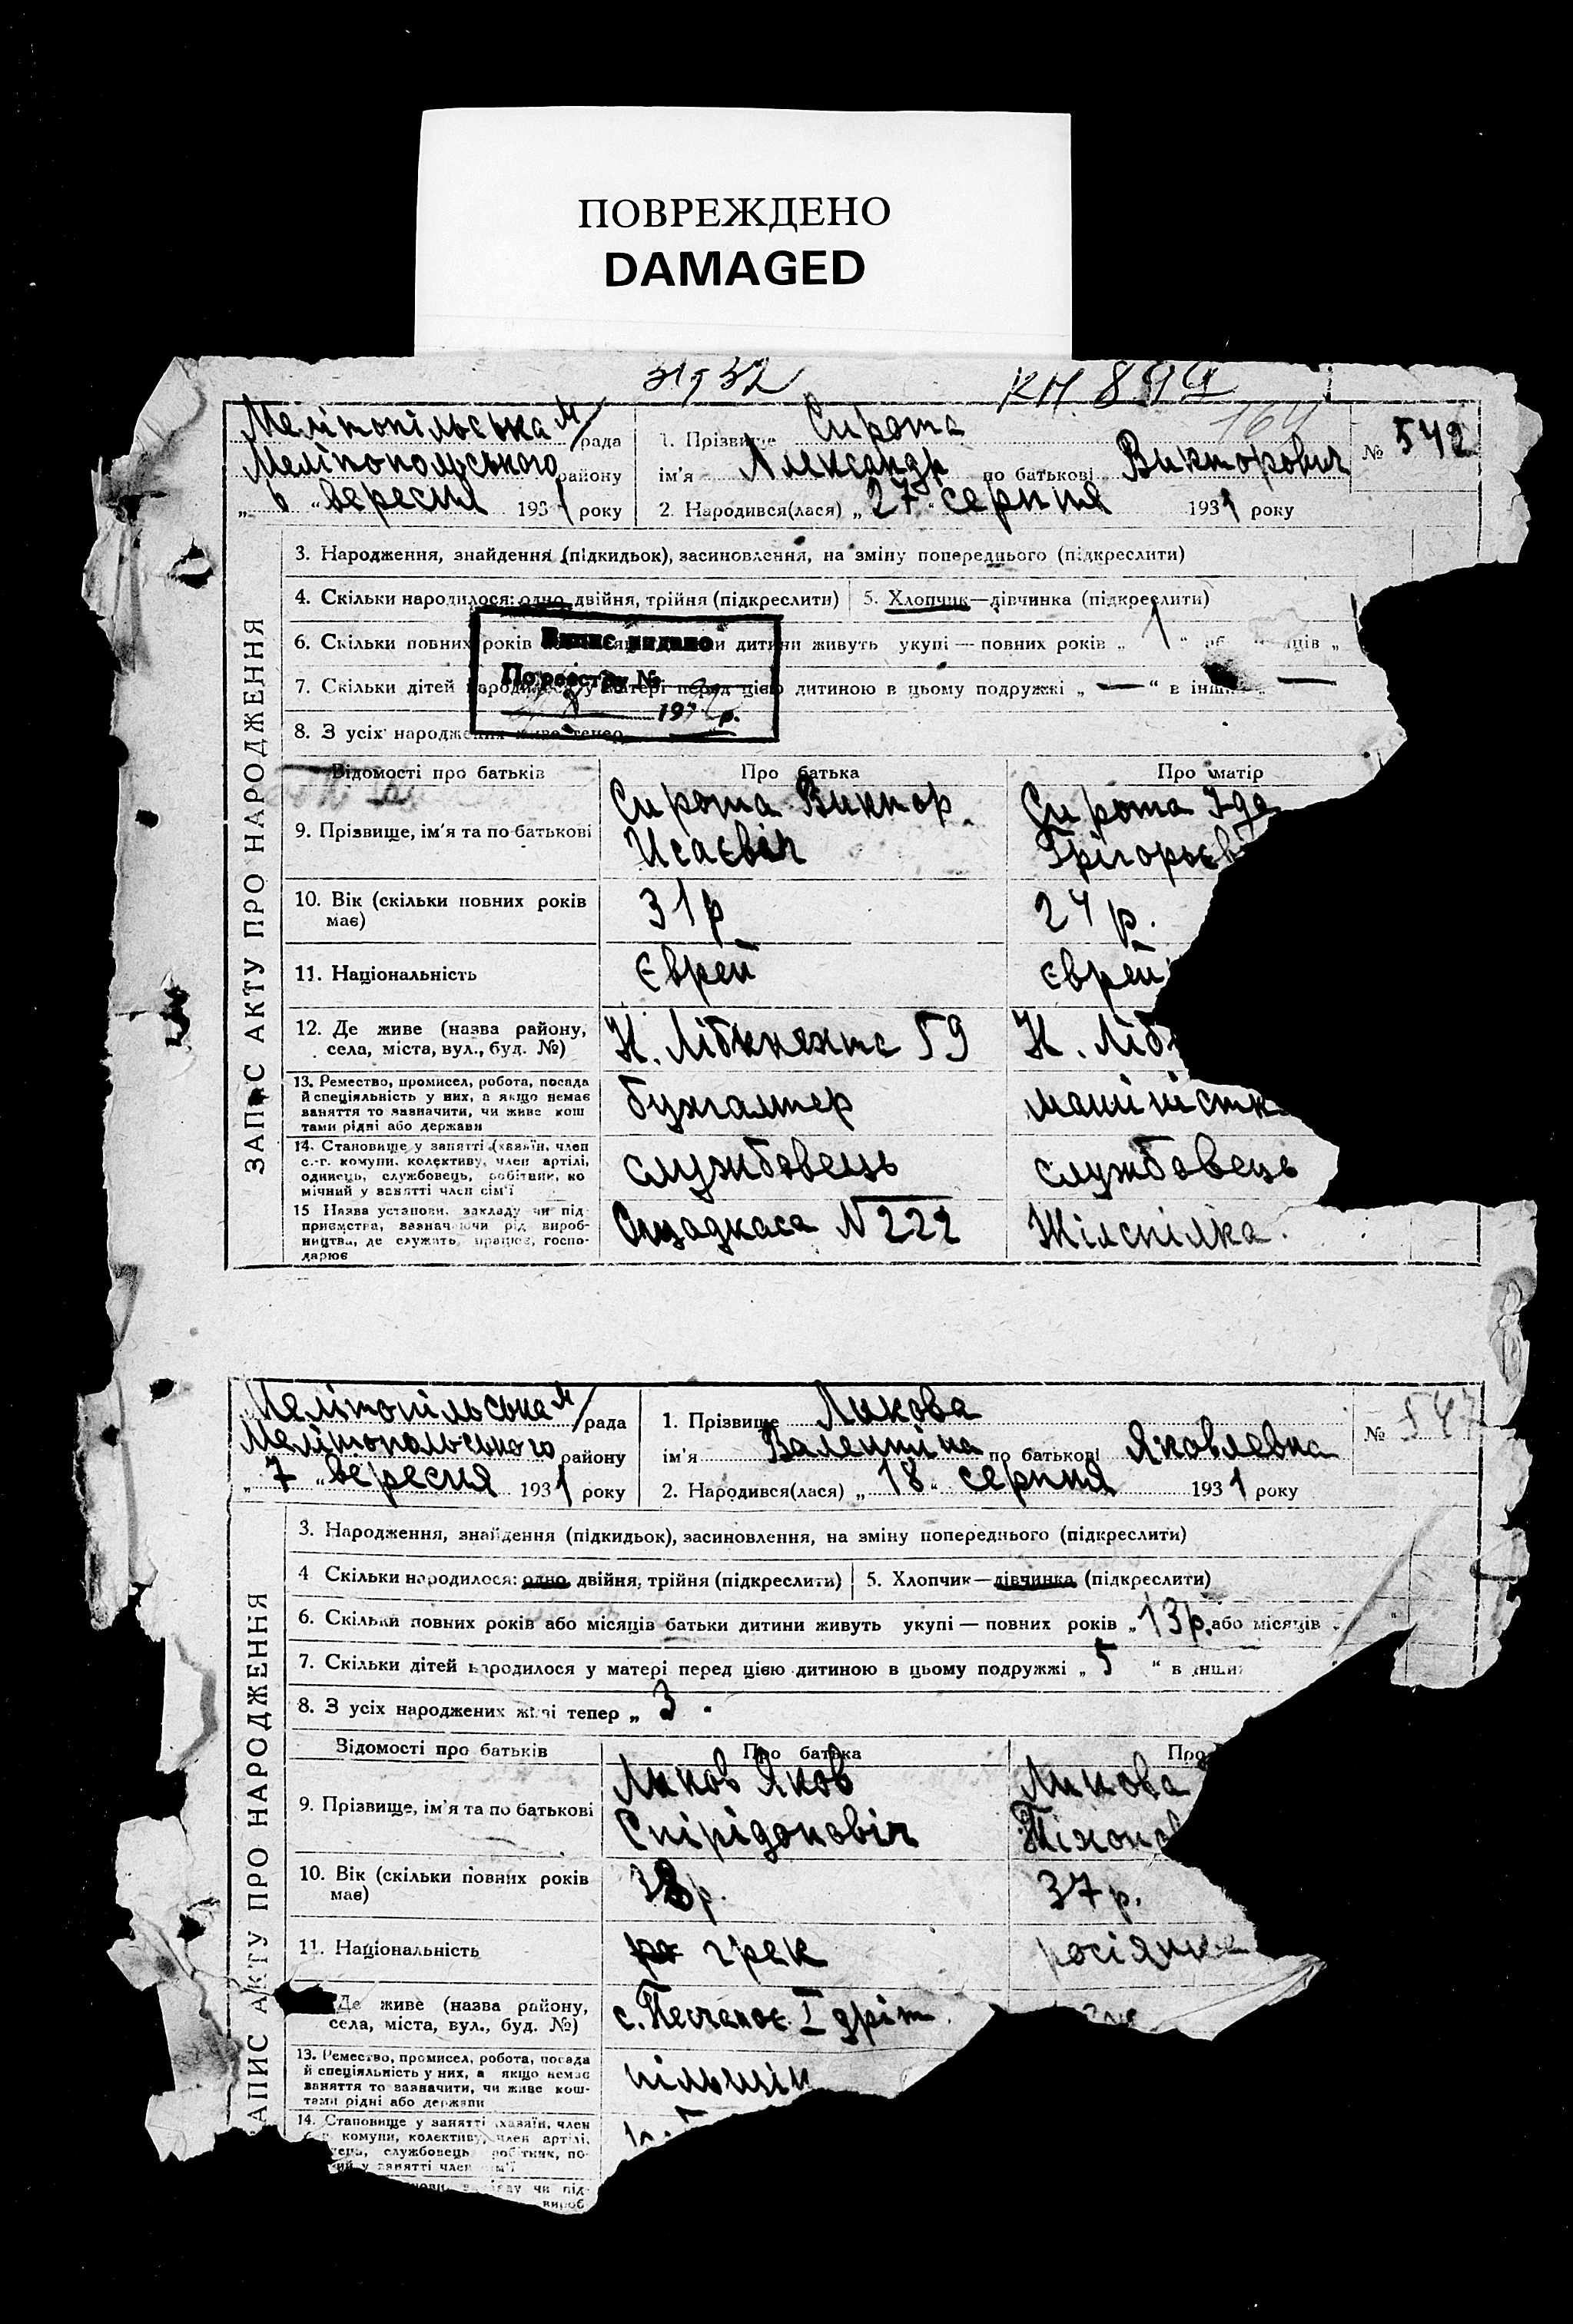 ПОВРЕЖДЕНО
DAMAGED
Мелітопільська м/рада
Мелітопольського району
„ 6 “ вересня 1931 року
1. Прізвище Сирота
ім'я Александр по батькові Викторович
2. Народився(лася) „ 27 “ серпня 1931 року
№ 542
164
ЗАПИС АКТУ ПРО НАРОДЖЕННЯ
3. Народження, знайдення (підкидьок), засиновлення, на зміну попереднього (підкреслити)
4. Скільки народилося: одно, двійня, трійня (підкреслити) 5. Хлопчик—дівчинка (підкреслити)
6. Скільки повних років дитини живуть укупі — повних років „ 1 “
7. Скільки дітей народилося у матері перед цією дитиною в цьому подружжі „ — “ в інших „ —
8. З усіх народжених живе тепер
Випис видано
По реєстру №
197 р.
Відомості про батьків Про батька Про матір
9. Прізвище, ім'я та по батькові
Сирота Виктор Исаєвіч
Сирота Іда Грігорьєв
10. Вік (скільки повних років має) 31 р 24 р.
11. Національність Єврей єврей
12. Де живе (назва району, села, міста, вул., буд. №) К. Лібкнехта 59 К. Ліб
13. Ремество, промисел, робота, посада
й спеціяльність у них, а якщо немає
заняття то зазначити, чи живе кош
тами рідні або держави
бухгалтер машиністк
14. Становище у занятті (хазяїн, член
с.-г. комуни, колективу, член артілі,
одинець, службовець, робітник, по
мічний у занятті член сім'ї
службовець службовець
15 Назва установи, закладу чи під
приємства, зазначаючи рід вироб-
ництва, де служить, працює, госпо-
дарює
Ощадкаса № 222 Жілспілка.
Мелітопільська м/рада
Мелітопольського району
„ 7 “ вересня 1931 року
1. Прізвище Ликова
ім'я Валентіна по батькові Яковлевна
2. Народився(лася) „ 18 “ серпня 1931 року
№ 547
АПИС АКТУ ПРО НАРОДЖЕННЯ
3. Народження, знайдення (підкидьок), засиновлення, на зміну попереднього (підкреслити)
4 Скільки народилося: одно, двійня, трійня (підкреслити) 5. Хлопчик—дівчинка (підкреслити)
6. Скільки повних років або місяців батьки дитини живуть укупі — повних років „ 13 р. або місяців „
7. Скільки дітей народилося у матері перед цією дитиною в цьому подружжі „ 5 “ в інши
8. З усіх народжених живі тепер „ 3
Відомості про батьків Про батька Про
9. Прізвище, ім'я та по батькові
Ликов Яков Спірідоновіч
Ликова Тіхонов
10. Вік (скільки повних років має) 38 р. 37 р.
11. Національність грек росіянка
Де живе (назва району, села, міста, вул., буд. №) с. Песчаноє I
13. Ремество, промисел, робота, посада
й спеціяльність у них, а якщо немає
заняття то зазначити, чи живе кош-
тами рідні або держави
14. Становище у занятті (хазяїн, член
комуни, колективу, член артілі,
службовець робітник, по-
у занятті член
чи під-
вироб